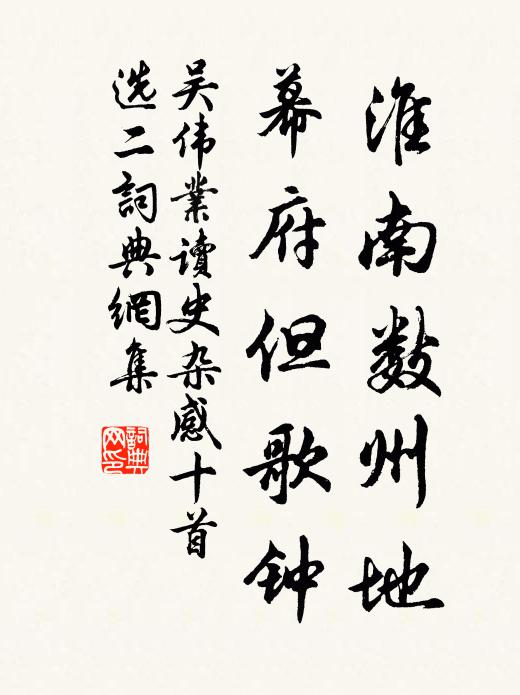 淮南数州地
幕府但歌钟
吴伟業讀史杂感十首
选二詞典網集
詞典
网印